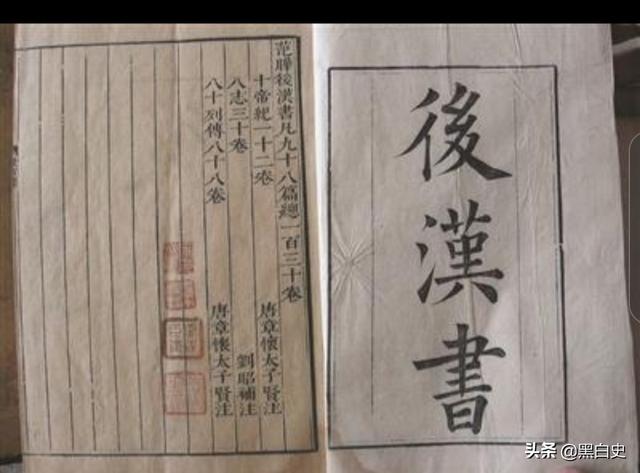 後漢書
范曄後漢書凡九十八篇總一百三十卷
十帝紀一十二卷 唐章懷太子賢注
八志三十卷 劉昭補注
八十列傳八十八卷 唐章懷太子賢注
头条 @黑白史